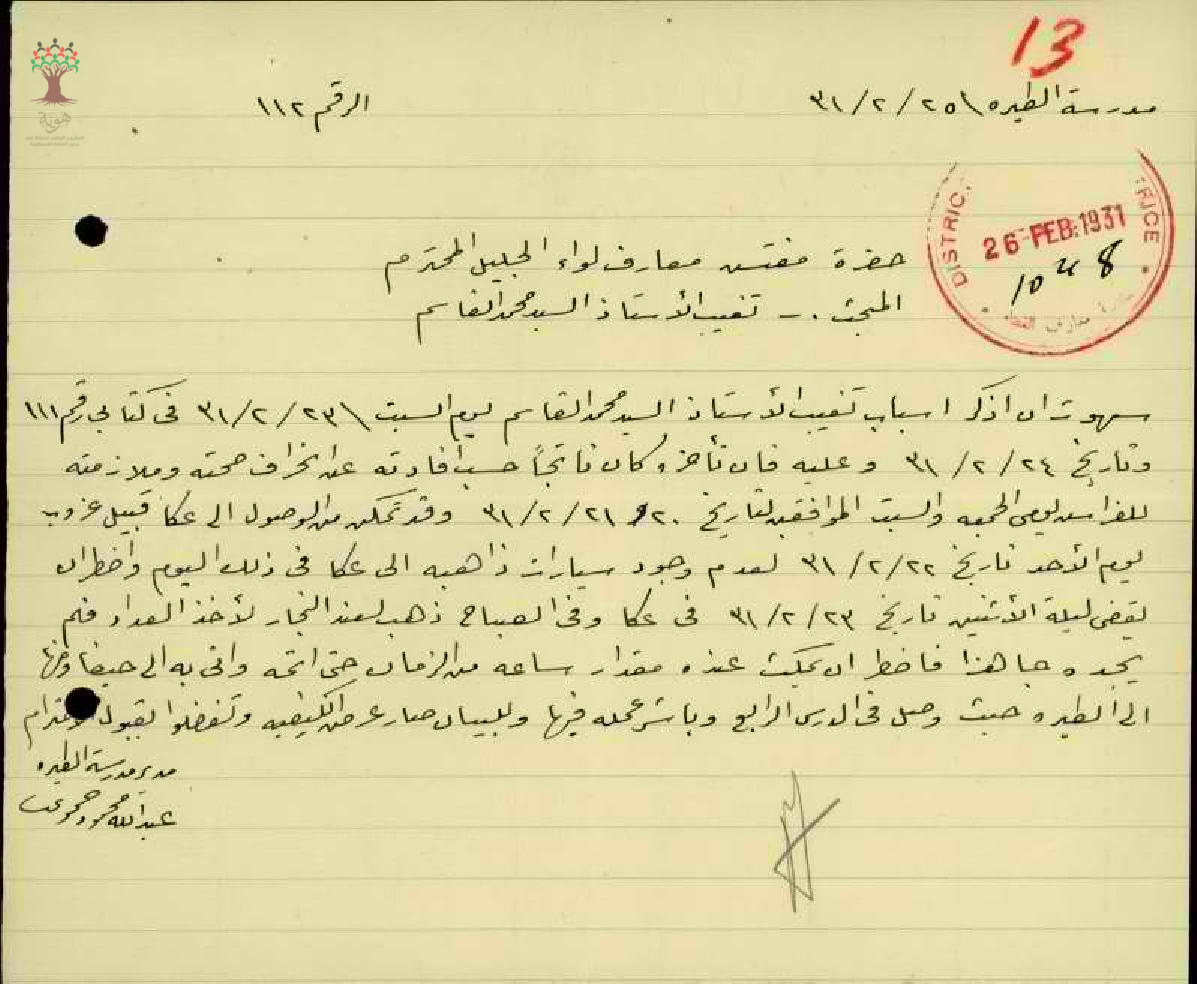 13
مدرسة الطيره \ ٢٥/٢/٣١
الرقم ١١٢
هوية
DISTRIC
26 FEB. 1931
1048
حضرة مفتش معارف لواء الجليل المحترم
المبحث .- تغيب الأستاذ السيد محمد القاسم
سهوت ان اذكر اسباب تغيب الأستاذ السيد محمد القاسم ليوم السبت \ ٢٣/٢/٣١ في كتابي رقم ١١١
وتاريخ ٢٤/٢/٣١ وعليه فان تأخره كان ناتجاً حسب افادته عن انحراف صحته وملازمته
للفراش ليومي الجمعه والسبت الموافقين لتاريخ ٢٠ و ٢١/٢/٣١ وقد تمكن من الوصول الى عكا قبيل غروب
يوم الأحد تاريخ ٢٢/٢/٣١ لعدم وجود سيارات ذاهبه الى عكا في ذلك اليوم واضطر ان
يقضي ليلة الأثنين تاريخ ٢٣/٢/٣١ في عكا وفي الصباح ذهب لعند النجار لأخذ العداد فلم
يجده جاهزا فاضطر ان يمكث عنده مقدار ساعه من الزمان حتى اتمه واتى به الى حيفا ومنها
الى الطيره حيث وصل في الدرس الرابع وباشر عمله فيها وللبيان صار عرض الكيفيه وتفضلوا بقبول الاحترام
مدير مدرسة الطيره
عبدالله محمود